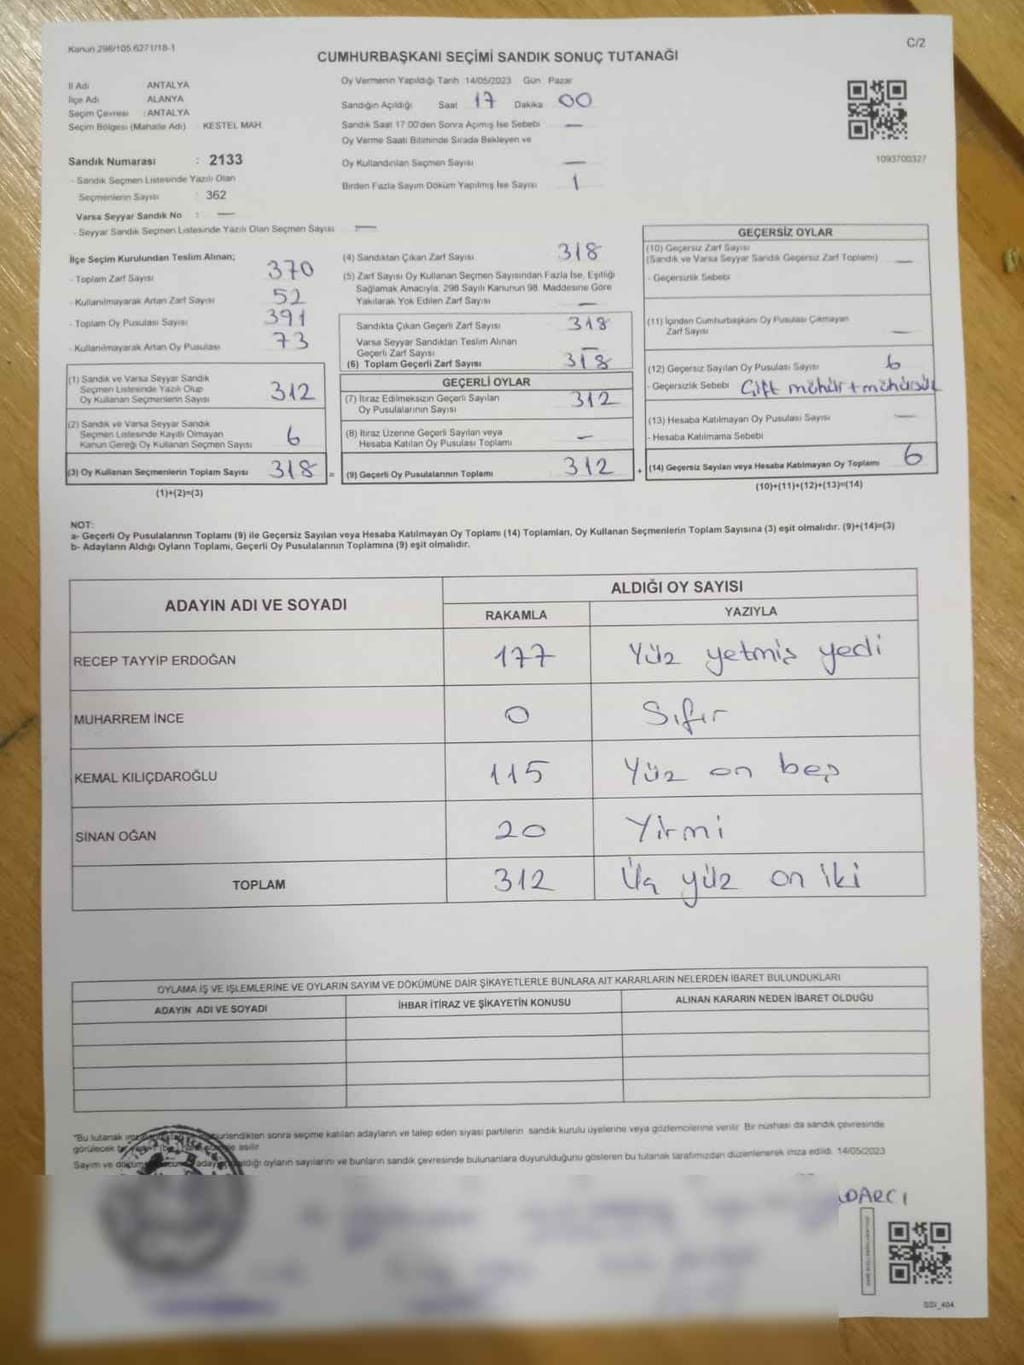 Kanun 298/105.6271/18-1
C/2
CUMHURBAŞKANI SEÇİMİ SANDIK SONUÇ TUTANAĞI
İl Adı ANTALYA
İlçe Adı ALANYA
Seçim Çevresi : ANTALYA
Seçim Bölgesi (Mahalle Adı) KESTEL MAH.
Sandık Numarası : 2133
- Sandık Seçmen Listesinde Yazılı Olan
Seçmenlerin Sayısı : 362
Varsa Seyyar Sandık No : —
- Seyyar Sandık Seçmen Listesinde Yazılı Olan Seçmen Sayısı —
Oy Vermenin Yapıldığı Tarih 14/05/2023 Gün Pazar
Sandığın Açıldığı Saat 17 Dakika 00
Sandık Saat 17 00'den Sonra Açımış İse Sebebi —
Oy Verme Saati Bitiminde Sırada Bekleyen ve
Oy Kullandırılan Seçmen Sayısı —
Birden Fazla Sayım Döküm Yapılmış İse Sayısı 1
1093700327
İlçe Seçim Kurulundan Teslim Alınan;
- Toplam Zarf Sayısı 370
- Kullanılmayarak Artan Zarf Sayısı 52
- Toplam Oy Pusulası Sayısı 391
- Kullanılmayarak Artan Oy Pusulası 73
(1) Sandık ve Varsa Seyyar Sandık
Seçmen Listesinde Yazılı Olup
Oy Kullanan Seçmenlerin Sayısı 312
(2) Sandık ve Varsa Seyyar Sandık
Seçmen Listesinde Kayıtlı Olmayan
Kanun Gereği Oy Kullanan Seçmen Sayısı 6
(3) Oy Kullanan Seçmenlerin Toplam Sayısı 318 =
(1)+(2)=(3)
(4) Sandıktan Çıkan Zarf Sayısı 318
(5) Zarf Sayısı Oy Kullanan Seçmen Sayısından Fazla İse, Eşitliği
Sağlamak Amacıyla, 298 Sayılı Kanunun 98. Maddesine Göre
Yakılarak Yok Edilen Zarf Sayısı —
Sandıkta Çıkan Geçerli Zarf Sayısı 318
Varsa Seyyar Sandıktan Teslim Alınan
Geçerli Zarf Sayısı —
(6) Toplam Geçerli Zarf Sayısı 318
GEÇERLİ OYLAR
(7) İtiraz Edilmeksizin Geçerli Sayılan
Oy Pusulalarının Sayısı 312
(8) İtiraz Üzerine Geçerli Sayılan veya
Hesaba Katılan Oy Pusulası Toplamı —
(9) Geçerli Oy Pusulalarının Toplamı 312 +
GEÇERSİZ OYLAR
(10) Geçersiz Zarf Sayısı
(Sandık ve Varsa Seyyar Sandık Geçersiz Zarf Toplamı) —
- Geçersizlik Sebebi
(11) İçinden Cumhurbaşkanı Oy Pusulası Çıkmayan
Zarf Sayısı —
(12) Geçersiz Sayılan Oy Pusulası Sayısı 6
- Geçersizlik Sebebi Çift mühür + mühürsüz
(13) Hesaba Katılmayan Oy Pusulası Sayısı —
- Hesaba Katılmama Sebebi
(14) Geçersiz Sayılan veya Hesaba Katılmayan Oy Toplamı 6
(10)+(11)+(12)+(13)=(14)
NOT:
a- Geçerli Oy Pusulalarının Toplamı (9) ile Geçersiz Sayılan veya Hesaba Katılmayan Oy Toplamı (14) Toplamları, Oy Kullanan Seçmenlerin Toplam Sayısına (3) eşit olmalıdır. (9)+(14)=(3)
b- Adayların Aldığı Oyların Toplamı, Geçerli Oy Pusulalarının Toplamına (9) eşit olmalıdır.
ADAYIN ADI VE SOYADI
ALDIĞI OY SAYISI
RAKAMLA YAZIYLA
RECEP TAYYİP ERDOĞAN 177 Yüz yetmiş yedi
MUHARREM İNCE 0 Sıfır
KEMAL KILIÇDAROĞLU 115 Yüz on beş
SİNAN OĞAN 20 Yirmi
TOPLAM 312 Üç yüz on iki
OYLAMA İŞ VE İŞLEMLERİNE VE OYLARIN SAYIM VE DÖKÜMÜNE DAİR ŞİKAYETLERLE BUNLARA AİT KARARLARIN NELERDEN İBARET BULUNDUKLARI
ADAYIN ADI VE SOYADI İHBAR İTİRAZ VE ŞİKAYETİN KONUSU ALINAN KARARIN NEDEN İBARET OLDUĞU
*Bu tutanak sonra seçime katılan adayların ve talep eden siyasi partilerin sandık kurulu üyelerine veya gözlemcilerine verilir. Bir nüshası da sandık çevresinde
görülecek asılır
Sayım ve oyların sayılarını ve bunların sandık çevresinde bulunanlara duyurulduğunu gösteren bu tutanak tarafımızdan düzenlenerek imza edildi. 14/05/2023
DARCI
SSI_404